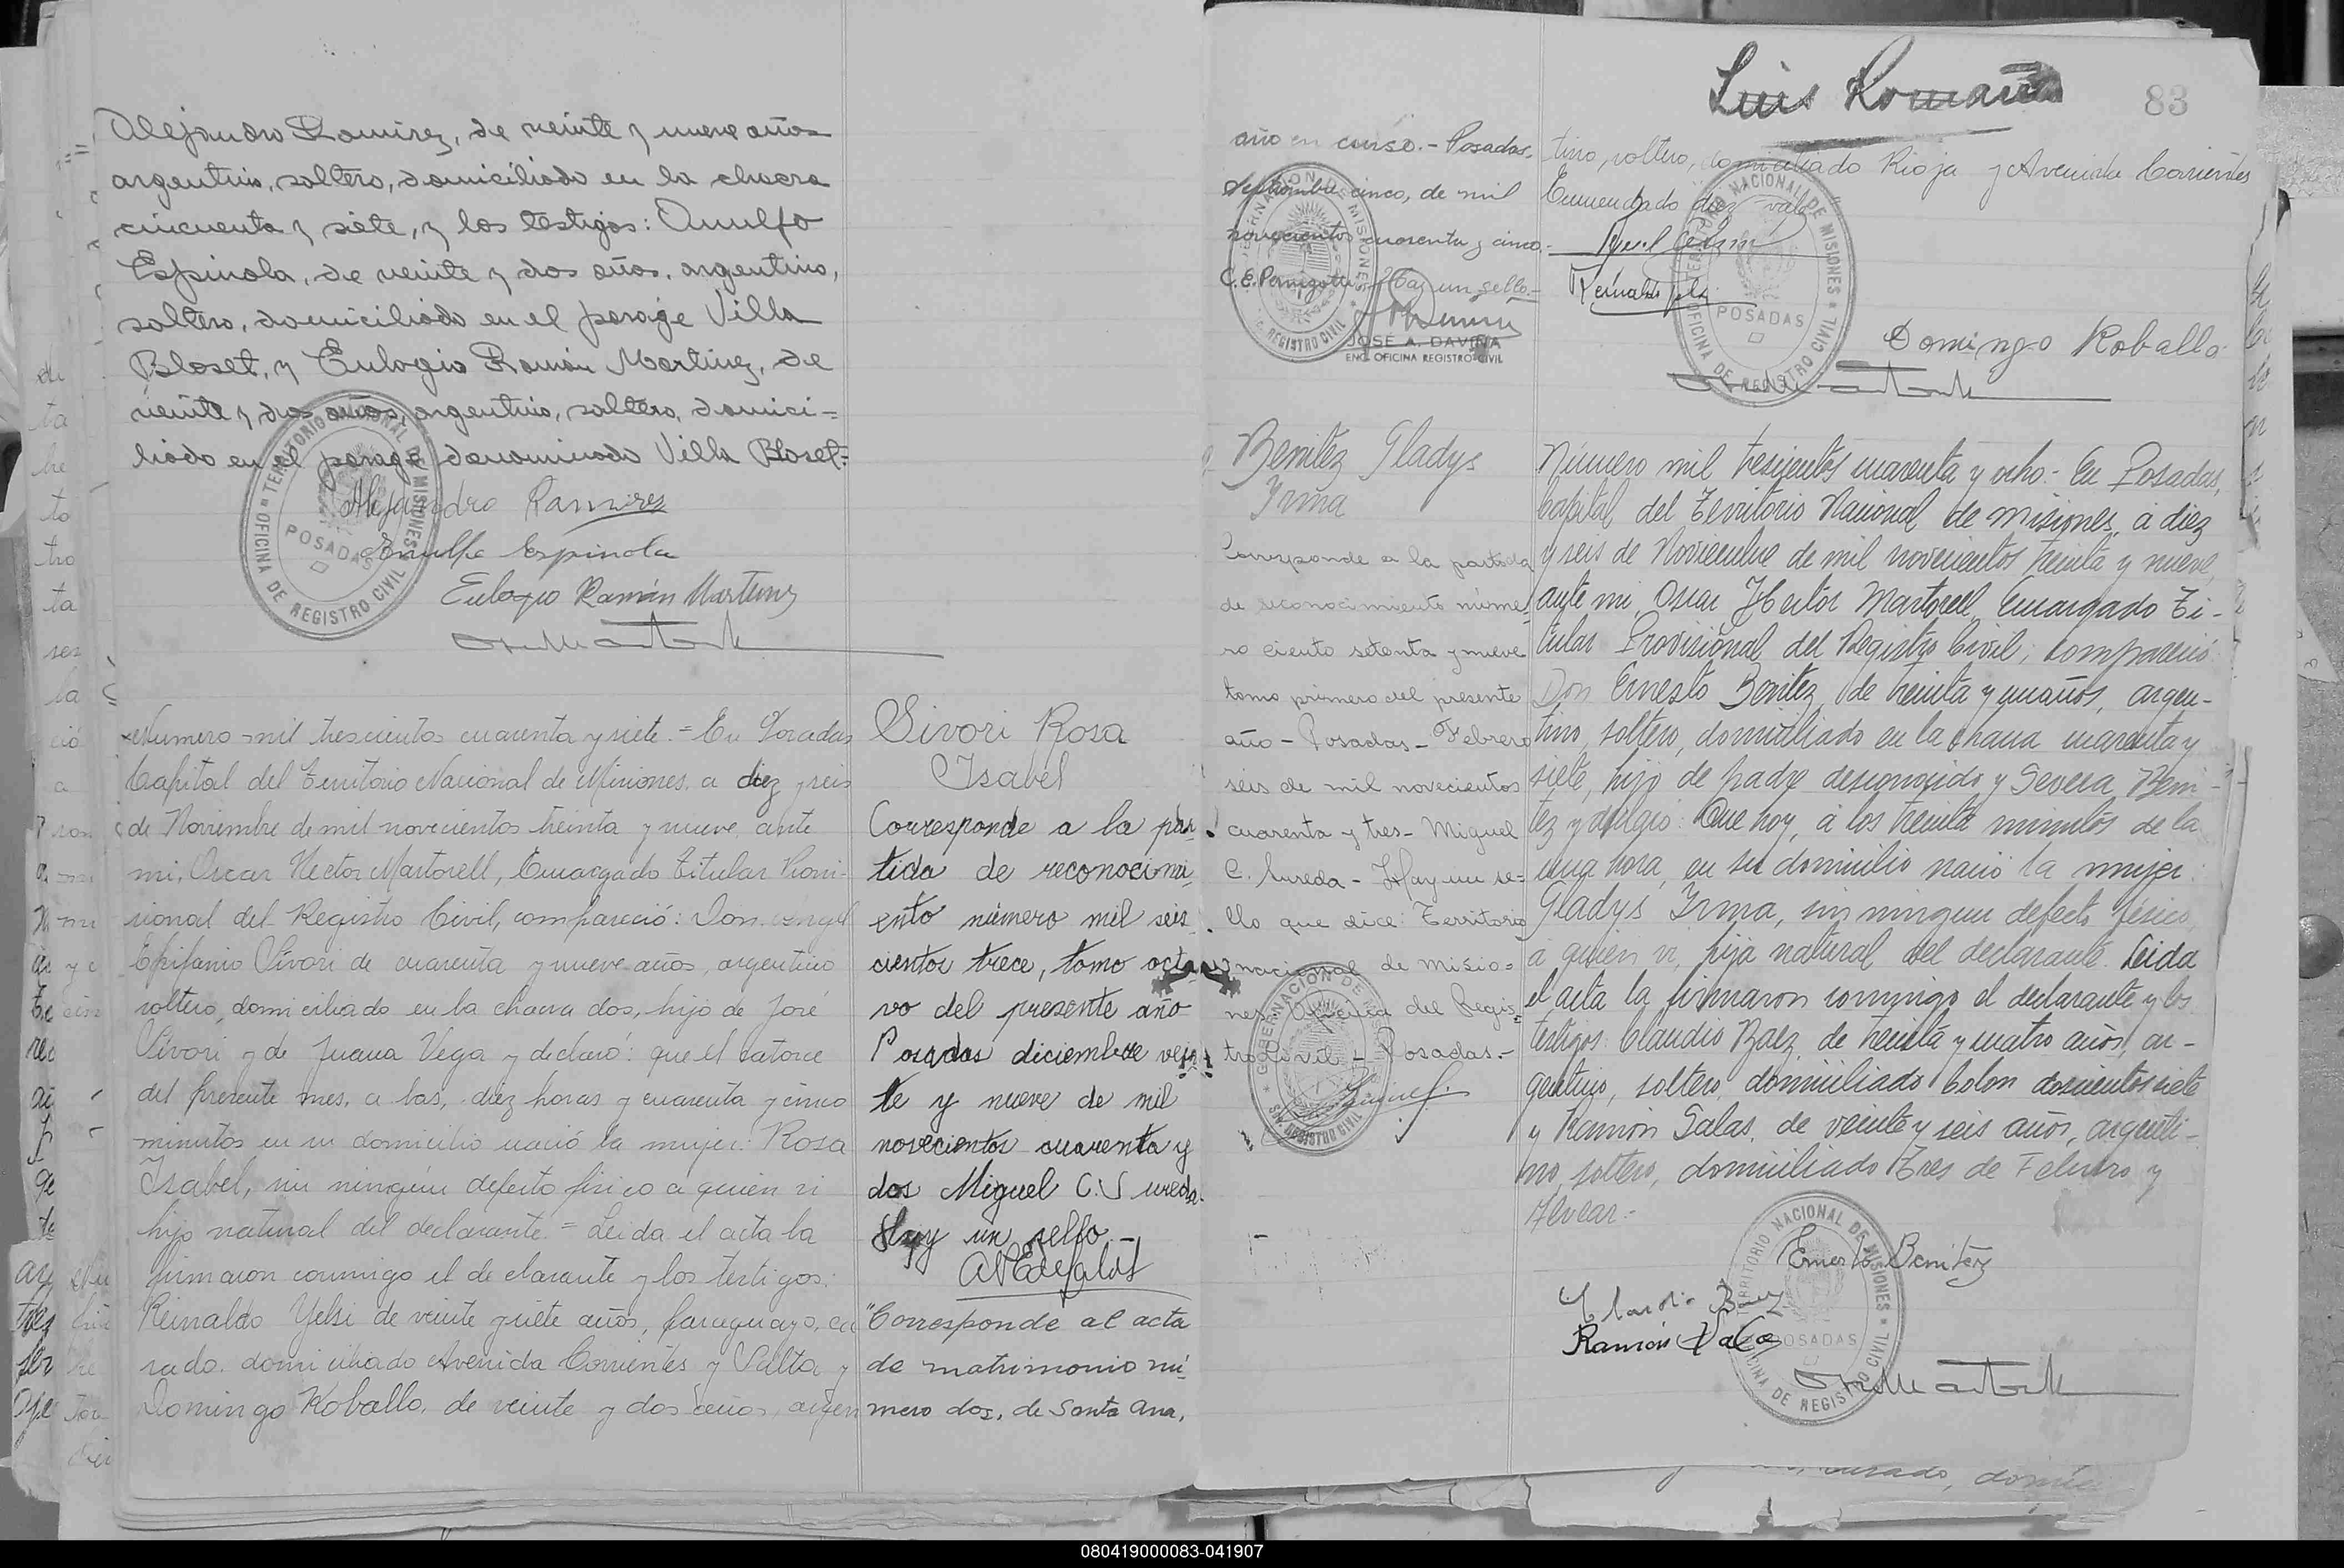 Alejandro Ramirez, de veinte y nueve años
argentino, soltero, domiciliado en la chacra
cincuenta y siete, y los testigos: Arnulfo
Espinola, de veinte y dos años, argentino,
soltero, domiciliado en el paraje Villa
Bloset, y Eulogio Ramón Martinez, de
veinte y dos años, argentino, soltero, domici-
liado en el paraje denominado Villa Bloset.-
TERRITORIO NACIONAL DE MISIONES
OFICINA DE REGISTRO CIVIL
POSADAS
Alejandro Ramires
Espinola
Eulogio Ramón Martinez
Numero mil trescientos cuarenta y siete.= En Posadas
Capital del Territorio Nacional de Misiones, a diez y seis
de Noviembre de mil novecientos treinta y nueve, ante
mi, Oscar Hector Martorell, Encargado Titular Provi-
sional del Registro Civil, compareció: Don Angel
Epifanio Sívori de cuarenta y nueve años, argentino
soltero, domiciliado en la chacra dos, hijo de José
Sívori y de Juana Vega y declaró: que el catorce
del presente mes, a las, diez horas y cuarenta y cinco
minutos en su domicilio nació la mujer: Rosa
Isabel, sin ningún defecto físico a quien vi
hija natural del declarante = Leida el acta la
firmaron conmigo el declarante y los testigos:
Reinaldo Yelsi de veinte y siete años, paraguayo, ca
sado, domiciliado Avenida Corrientes y Salta y
Domingo Roballo, de veinte y dos años, argen
Sivori Rosa
Isabel
Corresponde a la par-
tida de reconocimi-
ento número mil seis-
cientos trece, tomo octa-
vo del presente año
Posadas diciembre vein-
te y nueve de mil
novecientos cuarenta y
dos Miguel C. Sureda.
Hay un sello.-
"Corresponde al acta
de matrimonio nú-
mero dos, de Santa Ana,
Luis Romaña
83
año en curso.- Posadas,
Septiembre cinco, de mil
novecientos cuarenta y cinco.-
Hay un sello.-
JOSE A. DAVIÑA
ENC. OFICINA REGISTRO CIVIL
tino, soltero, domiciliado Rioja y Avenida Corrientes
Enmendado diez vale
TERRITORIO NACIONAL DE MISIONES
OFICINA DE REGISTRO CIVIL
POSADAS
Reinaldo Yelsi
Domingo Roballo
Benitez Gladys
Irma
Corresponde a la partida
de reconocimiento núme-
ro ciento setenta y nueve
tomo primero del presente
año - Posadas - Febrero
seis de mil novecientos
cuarenta y tres - Miguel
C. Sureda - Hay un se-
llo que dice: Territorio
nacional de Misio-
nes Oficina del Regis-
tro Civil - Posadas.-
Número mil trescientos cuarenta y ocho.- En Posadas,
Capital del Territorio Nacional de Misiones, a diez
y seis de Noviembre de mil novecientos treinta y nueve,
ante mi Oscar Hector Martorell, Encargado Ti-
tular Provisional del Registro Civil, compareció:
Don Ernesto Benitez, de treinta y un años, argen-
tino, soltero, domiciliado en la chacra cuarenta y
siete, hijo de padre desconocido y Severa Beni-
tez y declaró: Que hoy, a los treinta minutos de la
una hora, en su domicilio nació la mujer:
Gladys Irma, sin ningun defecto físico,
a quien vi, hija natural del declarante. Leida
el acta la firmaron conmigo el declarante y los
testigos: Claudio Baez, de treinta y cuatro años, ar-
gentino, soltero, domiciliado Colon doscientos siete
y Ramón Salas, de veinte y seis años, argenti-
no, soltero, domiciliado Tres de Febrero y
Alvear.-
TERRITORIO NACIONAL DE MISIONES
OFICINA DE REGISTRO CIVIL
POSADAS
Ernesto Benitez
Claudio Baez
Ramón Salas
080419000083-041907